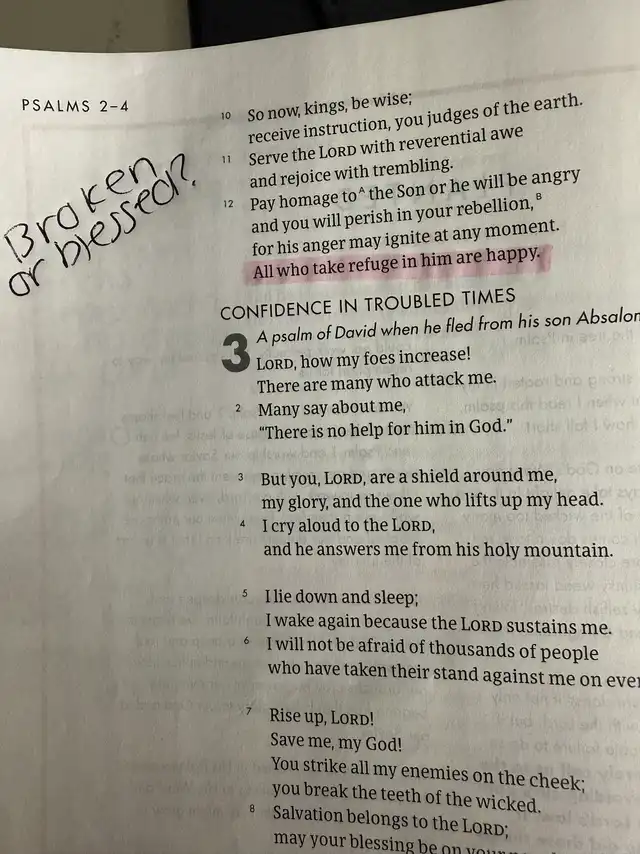 PSALMS 2–4
Broken
or blessed?
10 So now, kings, be wise;
receive instruction, you judges of the earth.
11 Serve the LORD with reverential awe
and rejoice with trembling.
12 Pay homage to^A the Son or he will be angry
and you will perish in your rebellion,^B
for his anger may ignite at any moment.
All who take refuge in him are happy.
CONFIDENCE IN TROUBLED TIMES
3 A psalm of David when he fled from his son Absalom
LORD, how my foes increase!
There are many who attack me.
2 Many say about me,
“There is no help for him in God.”
3 But you, LORD, are a shield around me,
my glory, and the one who lifts up my head.
4 I cry aloud to the LORD,
and he answers me from his holy mountain.
5 I lie down and sleep;
I wake again because the LORD sustains me.
6 I will not be afraid of thousands of people
who have taken their stand against me on
7 Rise up, LORD!
Save me, my God!
You strike all my enemies on the cheek;
you break the teeth of the wicked.
8 Salvation belongs to the LORD;
may your blessing be on